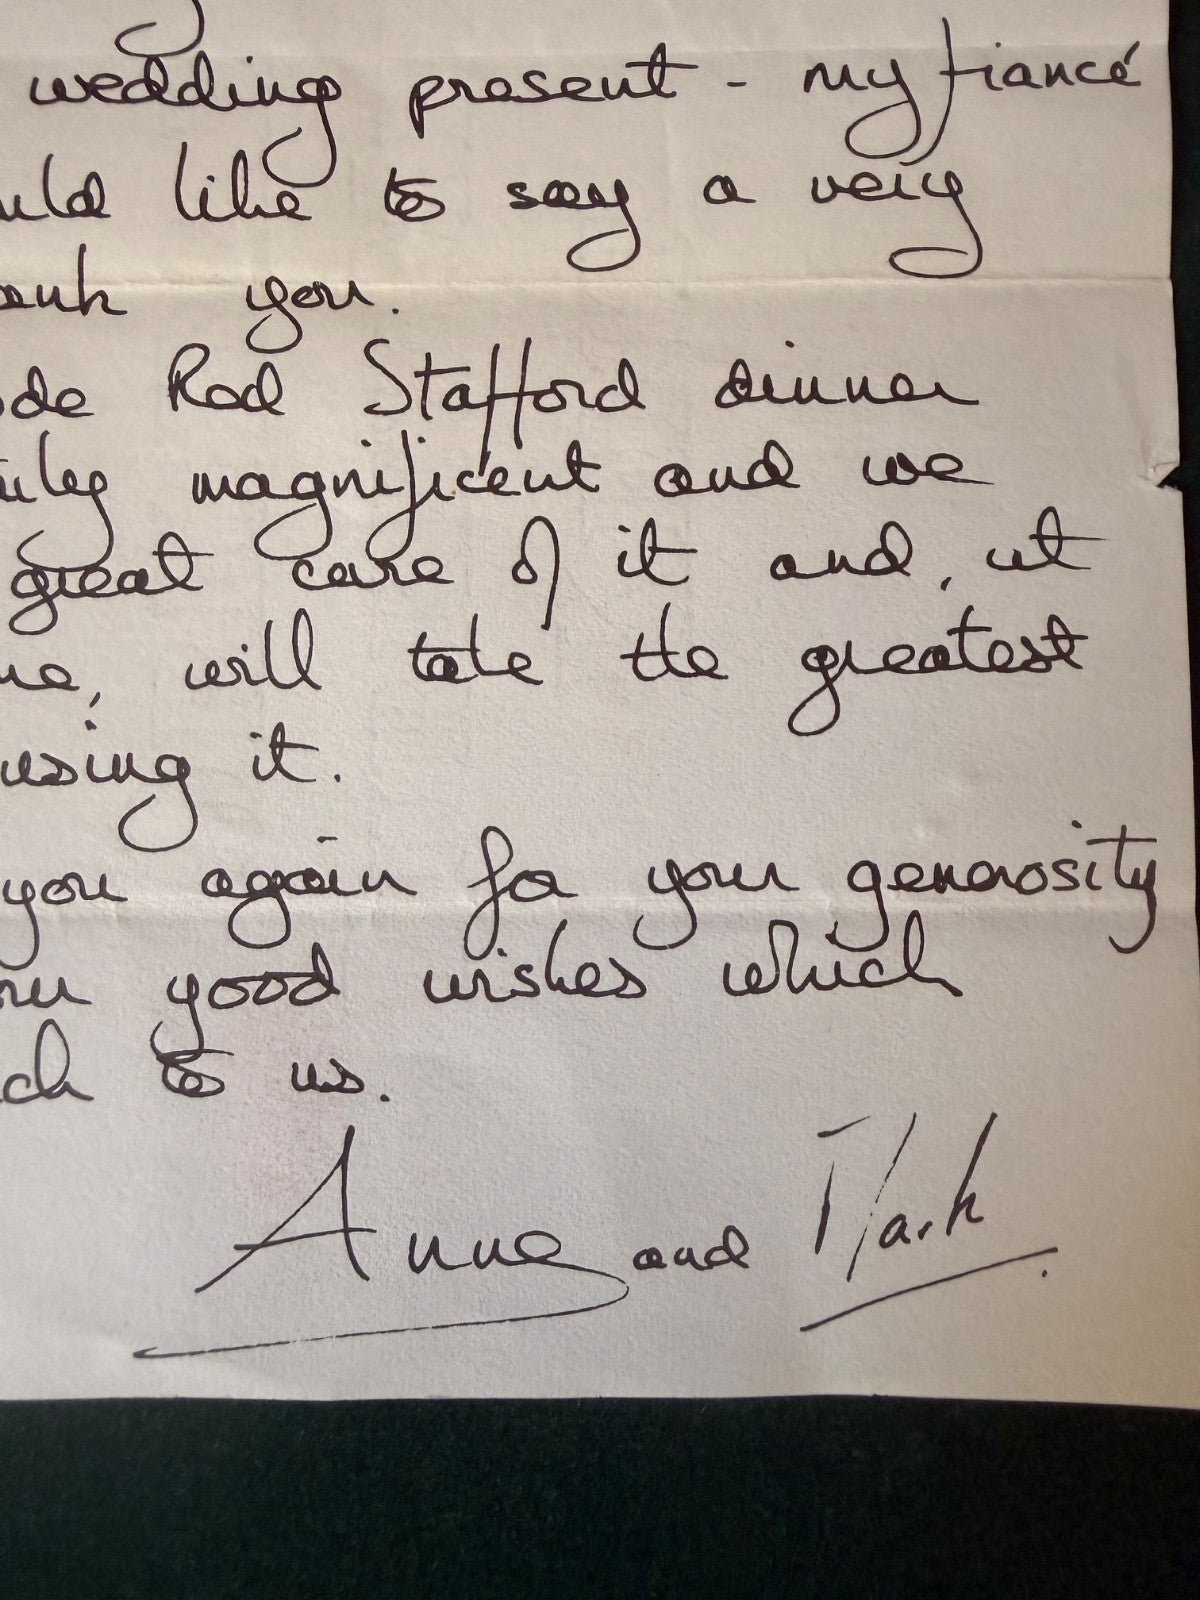 wedding present - my fiancé
uld like to say a very
ank you.
ode Red Stafford dinner
magnificent and we
great care of it and, at
me, will take the greatest
using it.
you again for your generosity
our good wishes which
ch to us.
Anne and Mark.